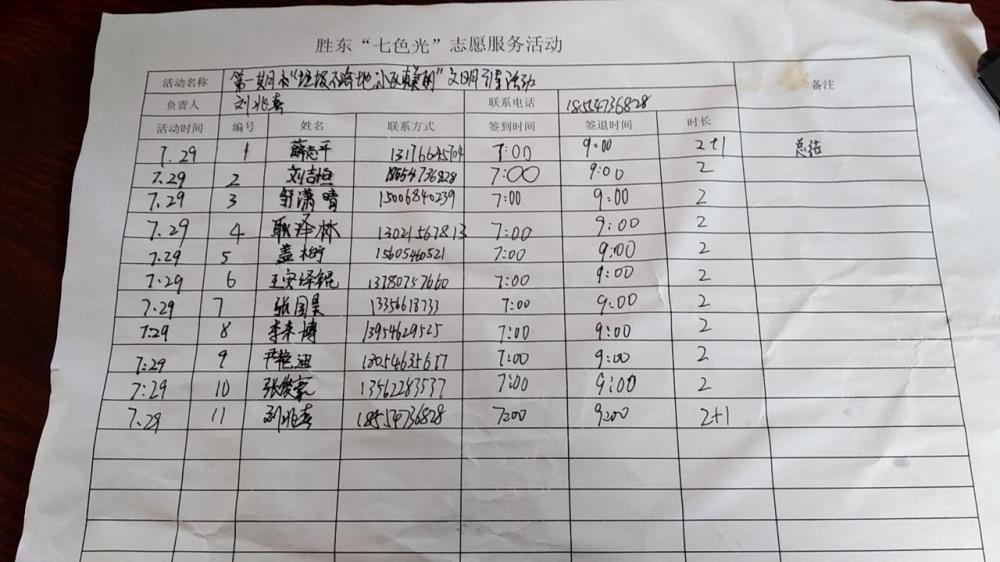 胜东“七色光”志愿服务活动
活动名称 第一期"垃圾不落地 小区更美丽"文明引导活动 备注
负责人 刘兆春 联系电话 18554736828
活动时间 编号 姓名 联系方式 签到时间 签退时间 时长
7.29 1 薛志平 13176645704 7:00 9:00 2+1 总结
7.29 2 刘吉恒 18554736828 7:00 9:00 2
7.29 3 邹潇晴 15006840239 7:00 9:00 2
7.29 4 耿泽林 13021567813 7:00 9:00 2
7.29 5 盖 15605460521 7:00 9:00 2
7.29 6 王安泽锟 13780757660 7:00 9:00 2
7.29 7 张国昊 1335618733 7:00 9:00 2
7:29 8 李来博 13954629525 7:00 9:00 2
7:29 9 严艳迪 7:00 9:00 2
7:29 10 张俊豪 13562283537 7:00 9:00 2
7.29 11 刘兆春 18554736828 7:00 9:00 2+1